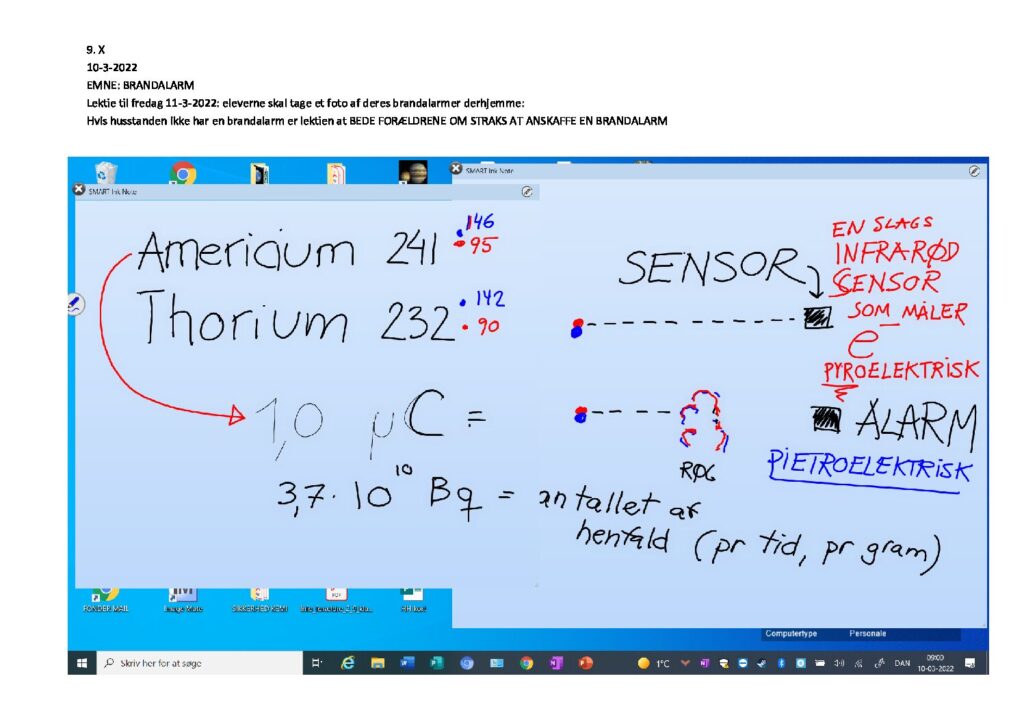 9. X
10-3-2022
EMNE: BRANDALARM
Lektie til fredag 11-3-2022: eleverne skal tage et foto af deres brandalarmer derhjemme:
Hvis husstanden ikke har en brandalarm er lektien at BEDE FORÆLDRENE OM STRAKS AT ANSKAFFE EN BRANDALARM
SMART Ink Note
SMART Ink Note
Americium 241
146
95
Thorium 232
142
90
1,0 µC =
3,7·10¹⁰ Bq = antallet af
henfald (pr tid, pr gram)
SENSOR
EN SLAGS
INFRARØD
SENSOR
SOM MÅLER
e
PYROELEKTRISK
ALARM
RØG
PIETROELEKTRISK
FONDER MAIL
Image Mate
SIKKERHED KEMI
Computertype Personale
Skriv her for at søge
1°C
DAN
09:00
10-03-2022